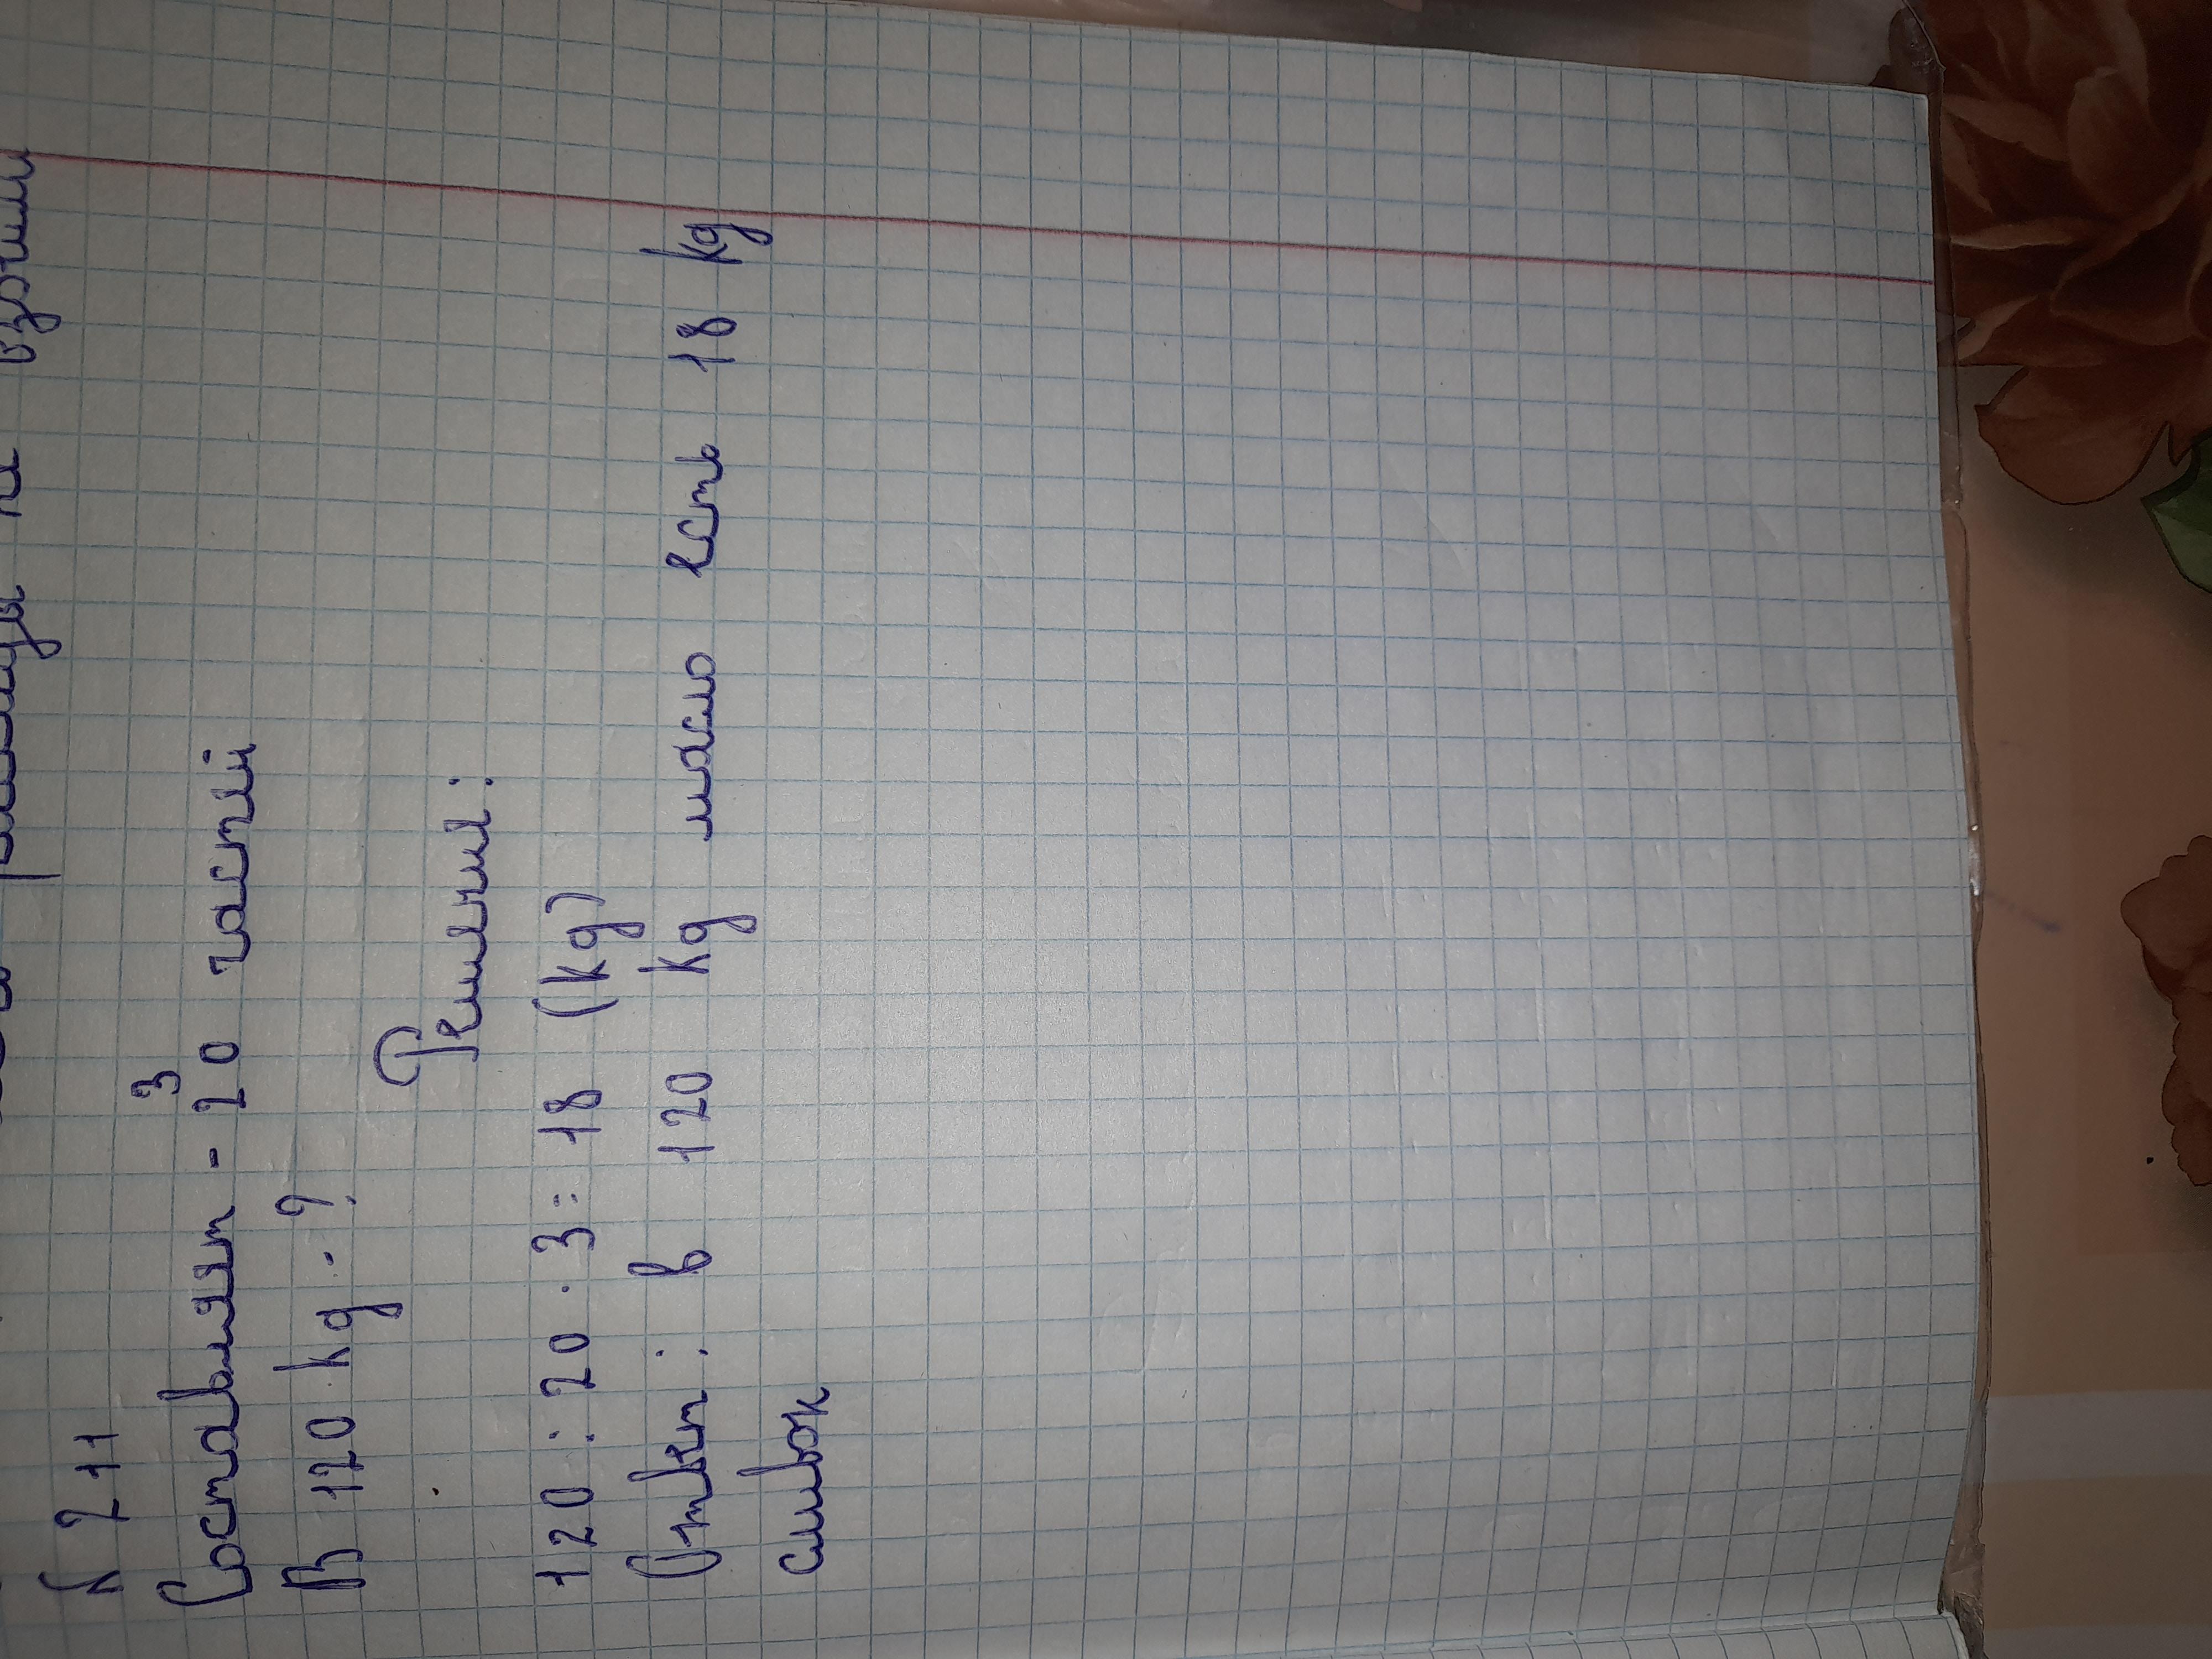 N 211
3
Составляет - 20 частей
В 120 kg - ?
Решение:
120 : 20 · 3 = 18 (kg)
Ответ: в 120 kg масло есть 18 kg
сливок